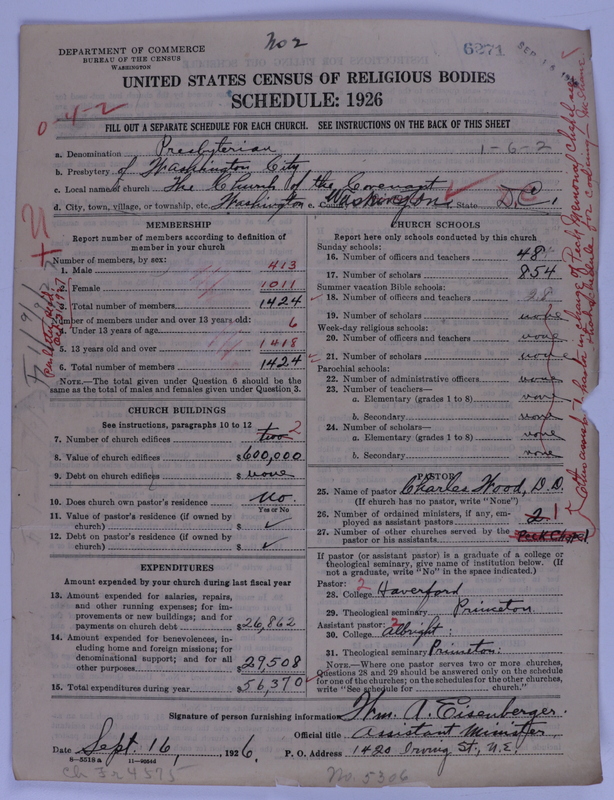 DEPARTMENT OF COMMERCE
BUREAU OF THE CENSUS
WASHINGTON
No 2
6271
SEP 18 1926
UNITED STATES CENSUS OF RELIGIOUS BODIES
SCHEDULE: 1926
0-4-2
FILL OUT A SEPARATE SCHEDULE FOR EACH CHURCH. SEE INSTRUCTIONS ON THE BACK OF THIS SHEET
a. Denomination Presbyterian 1-6-2
b. Presbytery of Washington City
c. Local name of church The Church of the Covenant
d. City, town, village, or township, etc. Washington e. County Washington State D.C.
MEMBERSHIP
Report number of members according to definition of member in your church
Number of members, by sex:
1. Male 413
2. Female 1011
3. Total number of members 1424
Number of members under and over 13 years old:
4. Under 13 years of age 6
5. 13 years old and over 1418
6. Total number of members 1424
NOTE.—The total given under Question 6 should be the same as the total of males and females given under Question 3.
CHURCH BUILDINGS
See instructions, paragraphs 10 to 12
7. Number of church edifices two 2
8. Value of church edifices $600,000
9. Debt on church edifices $ none
10. Does church own pastor's residence No.
Yes or No
11. Value of pastor's residence (if owned by church) $ ✓
12. Debt on pastor's residence (if owned by church) $ ✓
EXPENDITURES
Amount expended by your church during last fiscal year
13. Amount expended for salaries, repairs, and other running expenses; for improvements or new buildings; and for payments on church debt $26,862
14. Amount expended for benevolences, including home and foreign missions; for denominational support; and for all other purposes $29,508
15. Total expenditures during year $56,370
CHURCH SCHOOLS
Report here only schools conducted by this church
Sunday schools:
16. Number of officers and teachers 48
17. Number of scholars 854
Summer vacation Bible schools:
18. Number of officers and teachers
19. Number of scholars none
Week-day religious schools:
20. Number of officers and teachers none
21. Number of scholars none
Parochial schools:
22. Number of administrative officers none
23. Number of teachers—
a. Elementary (grades 1 to 8) none
b. Secondary none
24. Number of scholars—
a. Elementary (grades 1 to 8) none
b. Secondary none
PASTOR
25. Name of pastor Charles Wood, D.D.
(If church has no pastor, write "None")
26. Number of ordained ministers, if any, employed as assistant pastors 2 1
27. Number of other churches served by the pastor or his assistants Peck Chapel
If pastor (or assistant pastor) is a graduate of a college or theological seminary, give name of institution below. (If not a graduate, write "No" in the space indicated.)
Pastor:
28. College Haverford
29. Theological seminary Princeton
Assistant pastor: 2
30. College Albright
31. Theological seminary Princeton
NOTE.—Where one pastor serves two or more churches, Questions 28 and 29 should be answered only on the schedule for one of the churches; on the schedules for the other churches, write "See schedule for church."
Signature of person furnishing information Wm. A. Eisenberger
Official title Assistant Minister
Date Sept. 16, 1926.
P. O. Address 1420 Irving St., N.E.
8—5518a
No. 5306